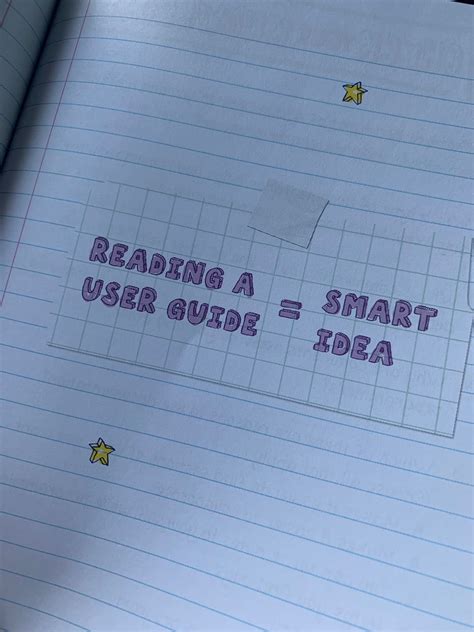 READING A
USER GUIDE
=
SMART
IDEA